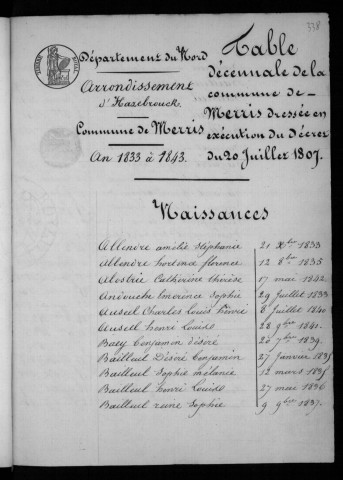 338
Département du Nord
Arrondissement
d'Hazebrouck
Commune de Merris
An 1833 à 1843.
Table
décennale de la
commune de
Merris dressée en
exécution du Décret
du 20 Juillet 1807.
Naissances
Allendre amélie Stéphanie 21 Xbre 1833
Allendre hortense florence 12 8bre 1835
Alostrie Catherine thérèse 17 mai 1842
Andouche Emerence Sophie 29 Juillet 1833
Auseel Charles Louis henri 8 Juillet 1840
Ausell henri Louis 28 9bre 1841.
Baey Benjamin désiré 20 7bre 1839.
Bailleul Désiré Benjamin 27 Janvier
Bailleul Sophie mélanie 12 mars
Bailleul henri Louis 27 mai 1836
Bailleul reine Sophie 9 9bre 1837.